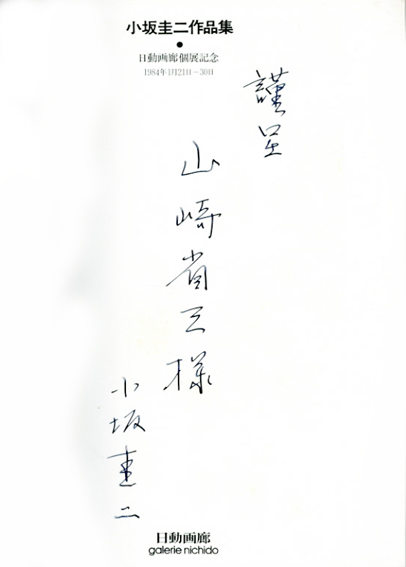 小坂圭二作品集
●
日動画廊個展記念
1984年1月21日−30日
謹呈
山崎省三様
小坂圭二
日動画廊
galerie nichido